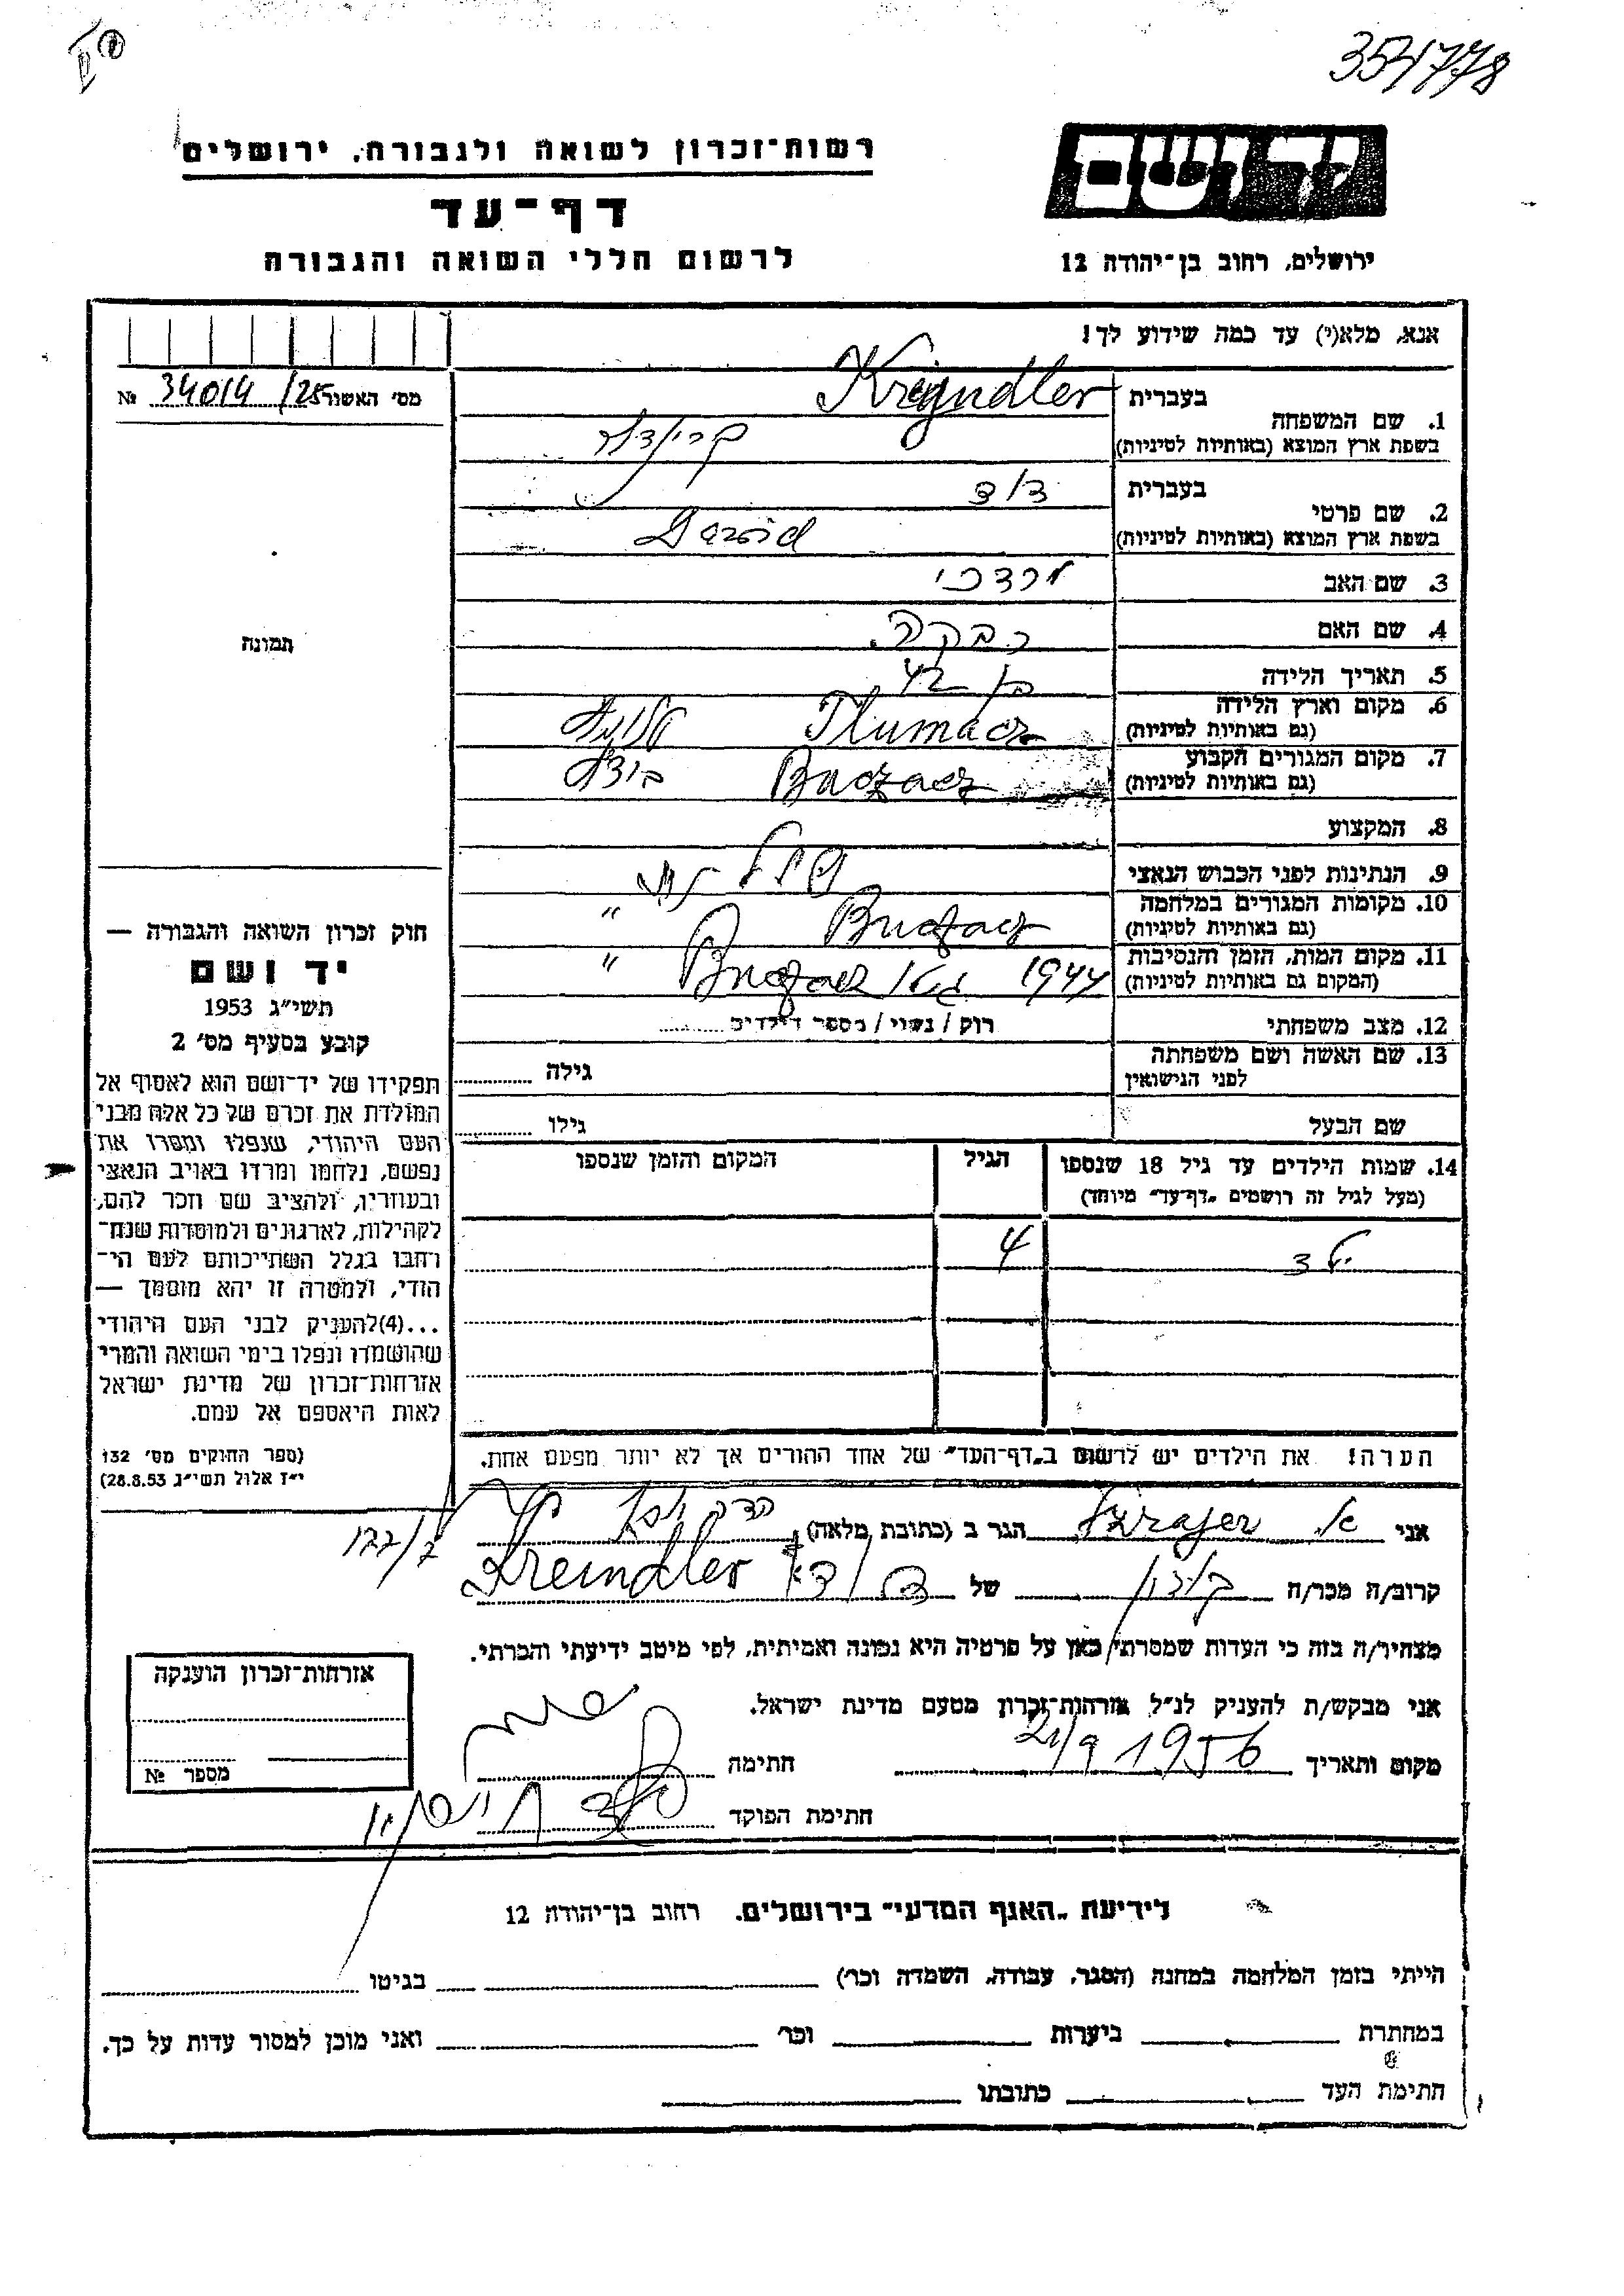 354778
רשות־זכרון לשואה ולגבורה, ירושלים
יד ושם
דף־עד
לרשום חללי השואה והגבורה
ירושלים, רחוב בן־יהודה 12
אנא, מלא(י) עד כמה שידוע לך!
מס׳ האשור 34014/25 №
1. שם המשפחה
בעברית Krejndler
בשפת ארץ המוצא (באותיות לטיניות)
2. שם פרטי
בעברית דוד
בשפת ארץ המוצא (באותיות לטיניות) Dawid
3. שם האב מרדכי
4. שם האם רבקה
5. תאריך הלידה בן 42
6. מקום וארץ הלידה Tłumacz
(גם באותיות לטיניות)
7. מקום המגורים הקבוע Buczacz
(גם באותיות לטיניות)
8. המקצוע
9. הנתינות לפני הכבוש הנאצי
10. מקומות המגורים במלחמה Buczacz "
(גם באותיות לטיניות)
11. מקום המות, הזמן והנסיבות 1944 Buczacz "
(המקום גם באותיות לטיניות)
12. מצב משפחתי רוק / נשוי / מספר הילדים
13. שם האשה ושם משפחתה גילה
לפני הנישואין
שם הבעל גילו
14. שמות הילדים עד גיל 18 שנספו הגיל המקום והזמן שנספו
(מעל לגיל זה רושמים „דף־עד״ מיוחד)
ילד 4
הערה! את הילדים יש לרשום ב„דף־העד״ של אחד ההורים אך לא יותר מפעם אחת.
תמונה
חוק זכרון השואה והגבורה —
יד ושם
תשי״ג 1953
קובע בסעיף מס׳ 2
תפקידו של יד־ושם הוא לאסוף אל
המולדת את זכרם של כל אלה מבני
העם היהודי, שנפלו ומסרו את
נפשם, נלחמו ומרדו באויב הנאצי
ובעוזריו, ולהציב שם וזכר להם,
לקהילות, לארגונים ולמוסדות שנח־
רחבו בגלל השתייכותם לעם הי־
הודי, ולמטרה זו יהא מוסמך —
...(4)להעניק לבני העם היהודי
שהושמדו ונפלו בימי השואה והמרי
אזרחות־זכרון של מדינת ישראל
לאות היאספם אל עמם.
(ספר החוקים מס׳ 132
י״ז אלול תשי״ג 28.8.53)
אני הגר ב (כתובת מלאה)
קרוב/ה מכר/ה של Kreindler
מצהיר/ה בזה כי העדות שמסרתי כאן על פרטיה היא נכונה ואמיתית, לפי מיטב ידיעתי והכרתי.
אני מבקש/ת להעניק לנ״ל אזרחות־זכרון מטעם מדינת ישראל.
מקום ותאריך 21/9 1956 חתימה
חתימת הפוקד
אזרחות־זכרון הוענקה
מספר №
לידיעת „האגף המדעי״ בירושלים. רחוב בן־יהודה 12
הייתי בזמן המלחמה במחנה (הסגר, עבודה, השמדה וכר׳) בגיטו
במחתרת ביערות וכר׳ ואני מוכן למסור עדות על כך.
חתימת העד כתובתו